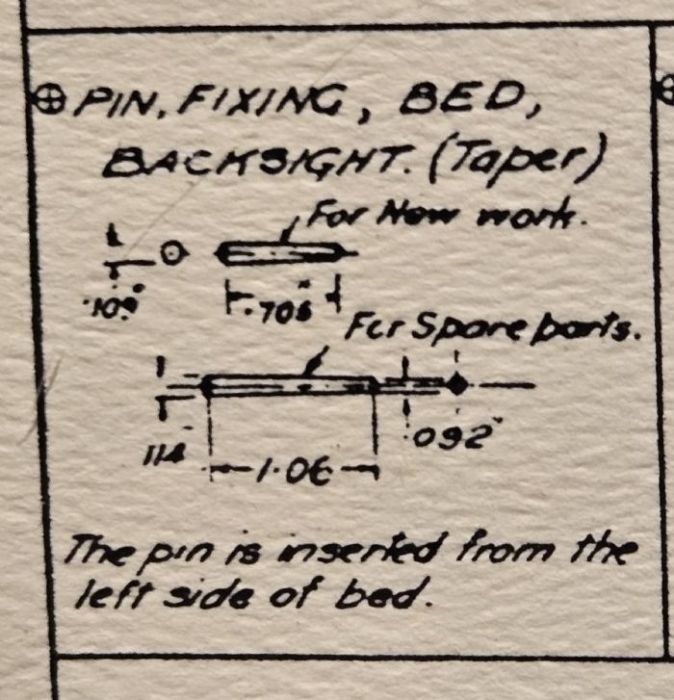 ⊕ PIN, FIXING, BED,
BACKSIGHT. (Taper)
For New work.
.109"
.705"
For Spare parts.
.114"
1.06
.092"
The pin is inserted from the
left side of bed.